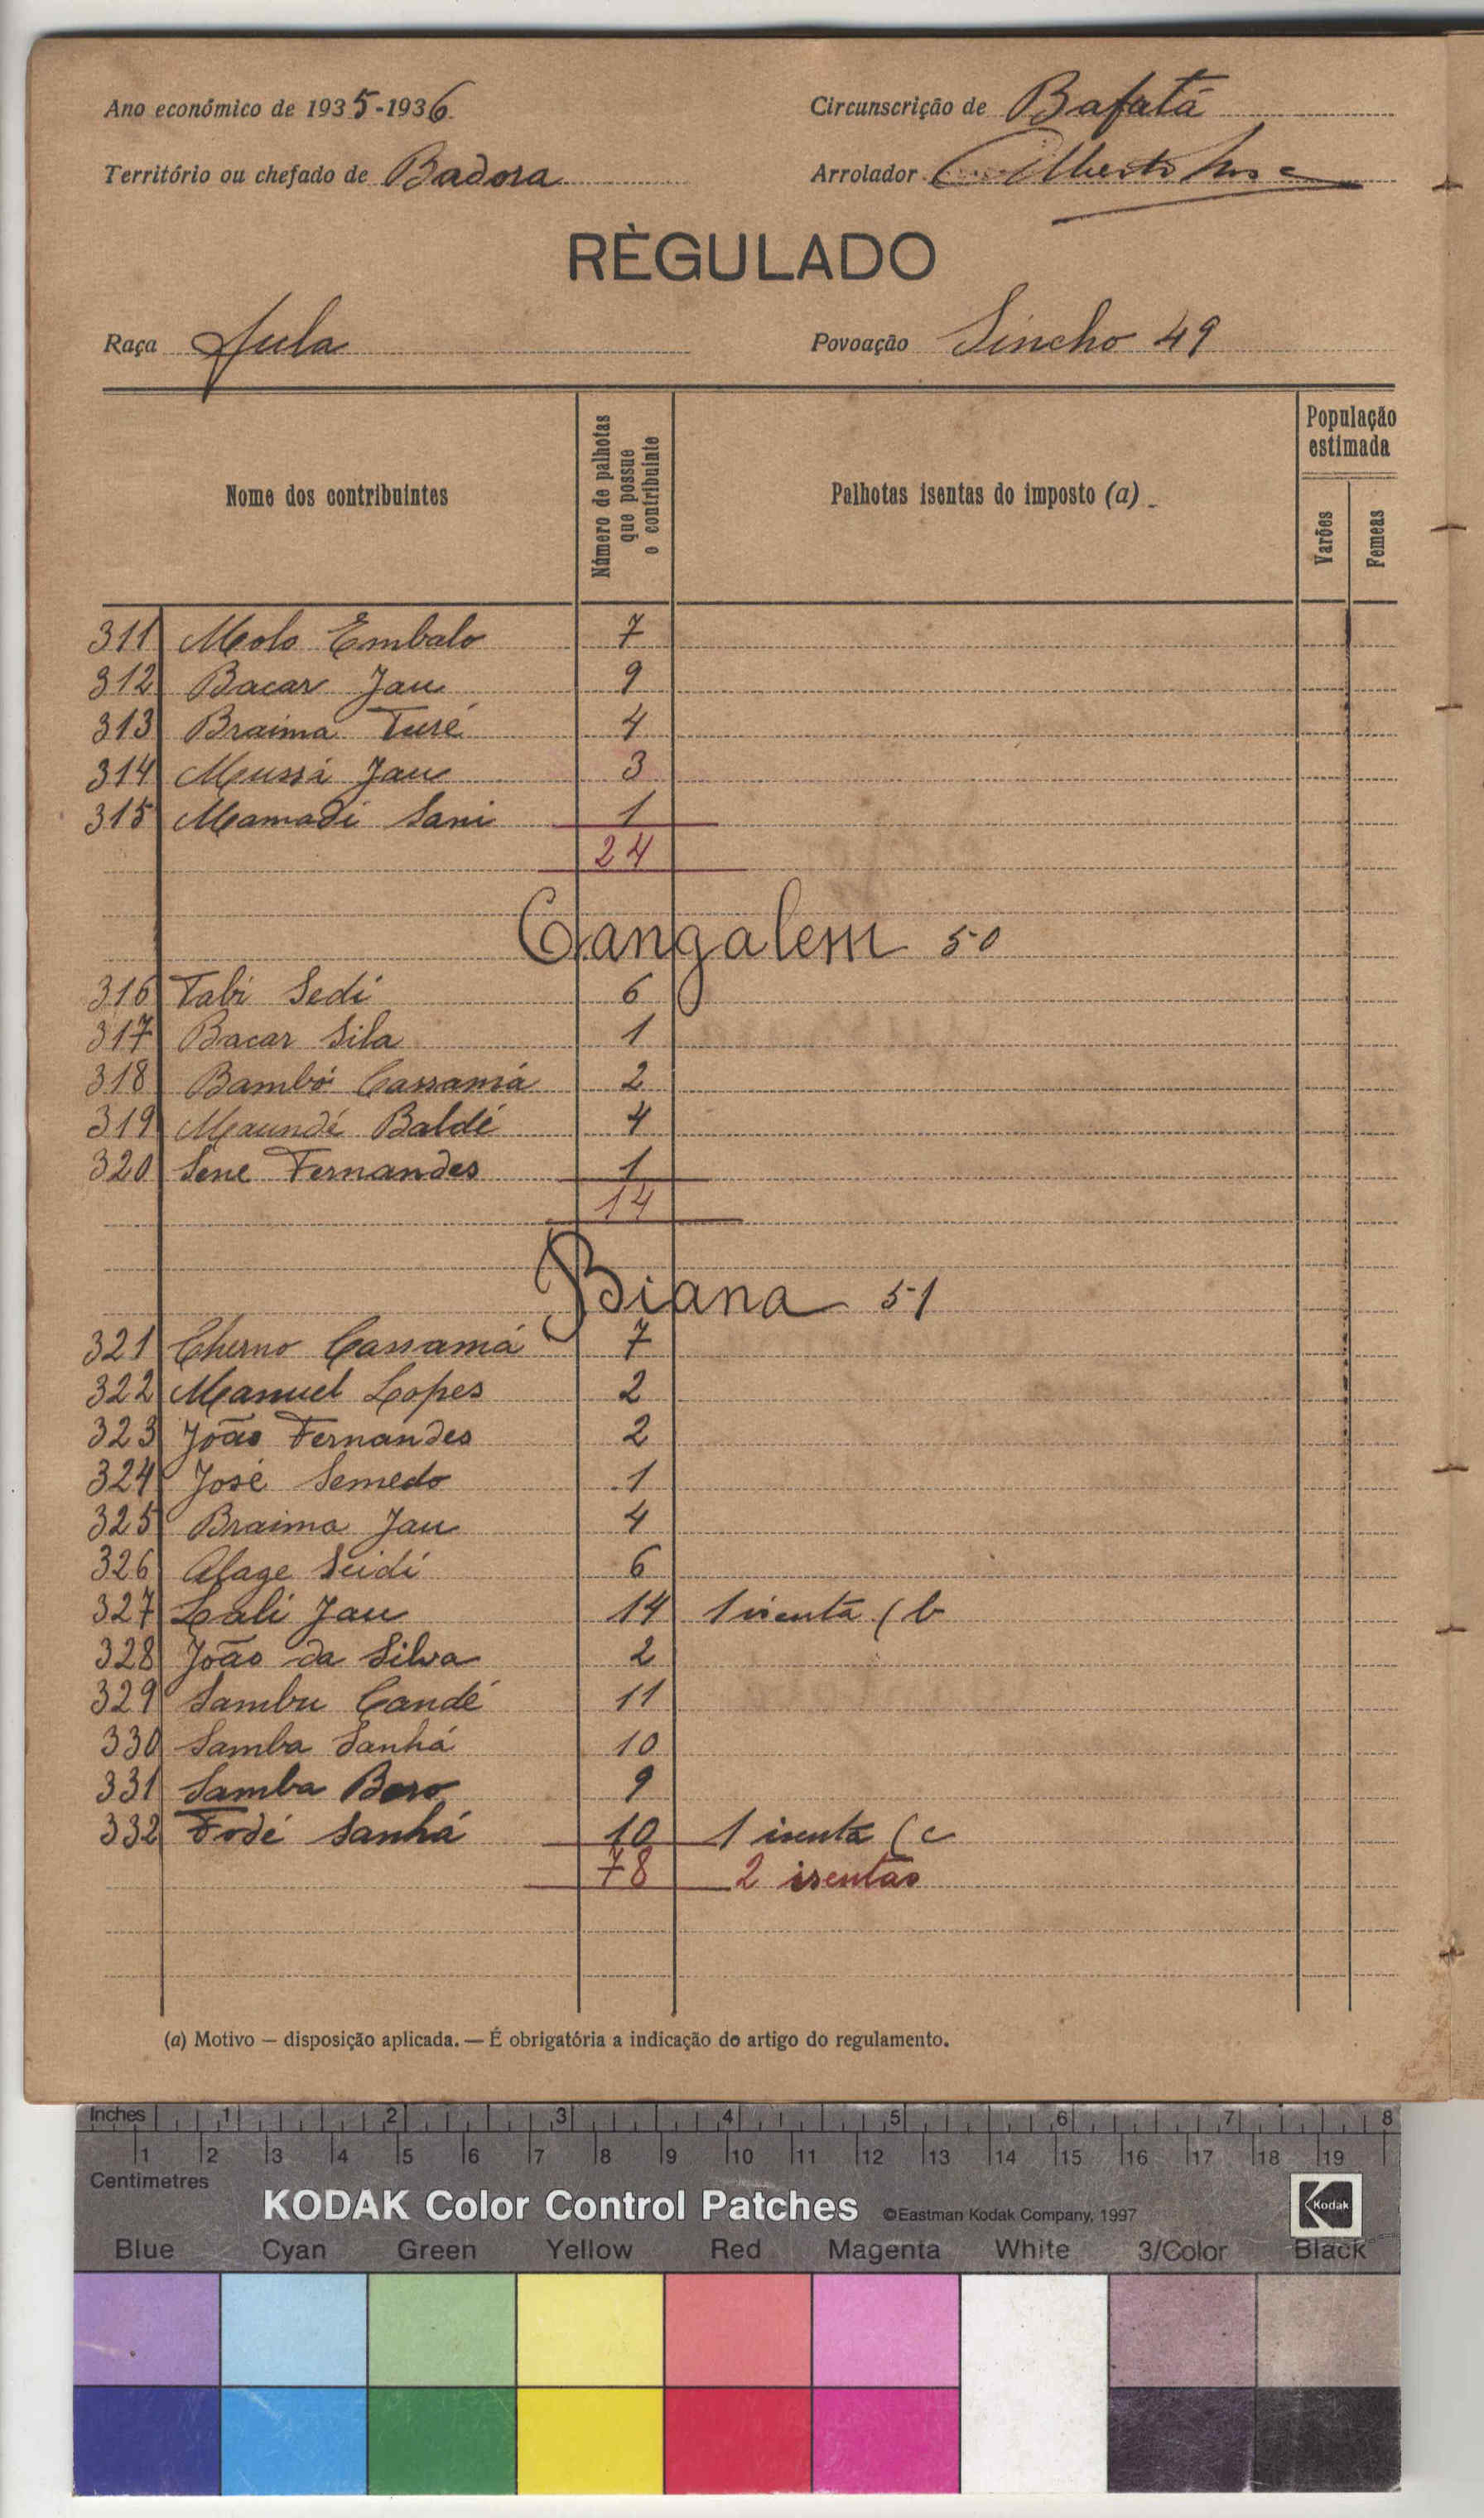 Ano económico de 1935-1936
Circunscrição de Bafatá
Território ou chefado de Badora
Arrolador Alberto
RÈGULADO
Raça Fula
Povoação Sincho 49
Nome dos contribuintes
Número de palhotas que possue o contribuinte
Palhotas isentas do imposto (a)
População estimada
Varões
Femeas
311 Molo Embalo 7
312 Bacar Jau 9
313 Braima Turé 4
314 Mussá Jau 3
315 Mamadi Sani 1
24
Gangalem 50
316 Tabi Sedi 6
317 Bacar Sila 1
318 Bambó Cassamá 2
319 Maundé Baldé 4
320 Sene Fernandes 1
14
Biana 51
321 Cherno Cassamá 7
322 Manuel Lopes 2
323 João Fernandes 2
324 José Semedo 1
325 Braima Jau 4
326 Alage Seidi 6
327 Lali Jau 14 1 isenta (b
328 João da Silva 2
329 Sambu Candé 11
330 Samba Sanhá 10
331 Samba Bero 9
332 Fodé Sanhá 10 1 isenta (c
78 2 isentas
(a) Motivo — disposição aplicada. — É obrigatória a indicação do artigo do regulamento.
Inches 1 2 3 4 5 6 7 8
1 2 3 4 5 6 7 8 9 10 11 12 13 14 15 16 17 18 19
Centimetres
KODAK Color Control Patches ©Eastman Kodak Company, 1997
Kodak
Blue Cyan Green Yellow Red Magenta White 3/Color Black